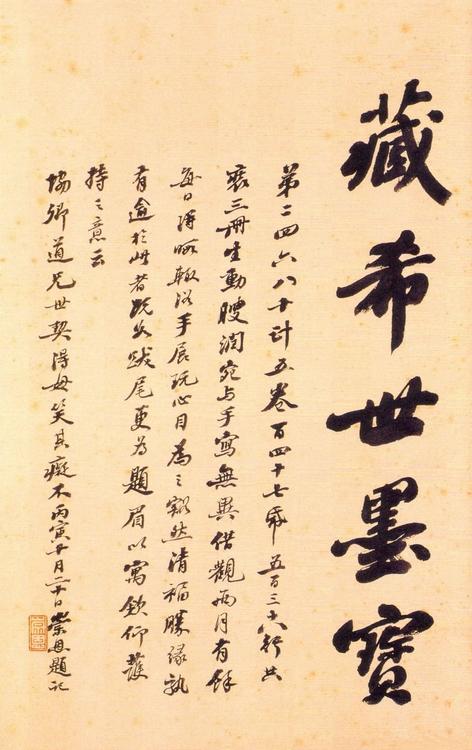 藏希世墨寶
第二四六八十計五卷百四十七帋五百三十八行共
裝三冊生動腴潤宛与手寫無異借觀兩月有餘
每日得暇輒浴手展玩心目為之豁然清福勝緣孰
有逾於此者既久跋尾更為題眉以寓欽仰護
持之意云
協卿道兄世契得毋笑其癡不丙寅十月二十日崇恩題記